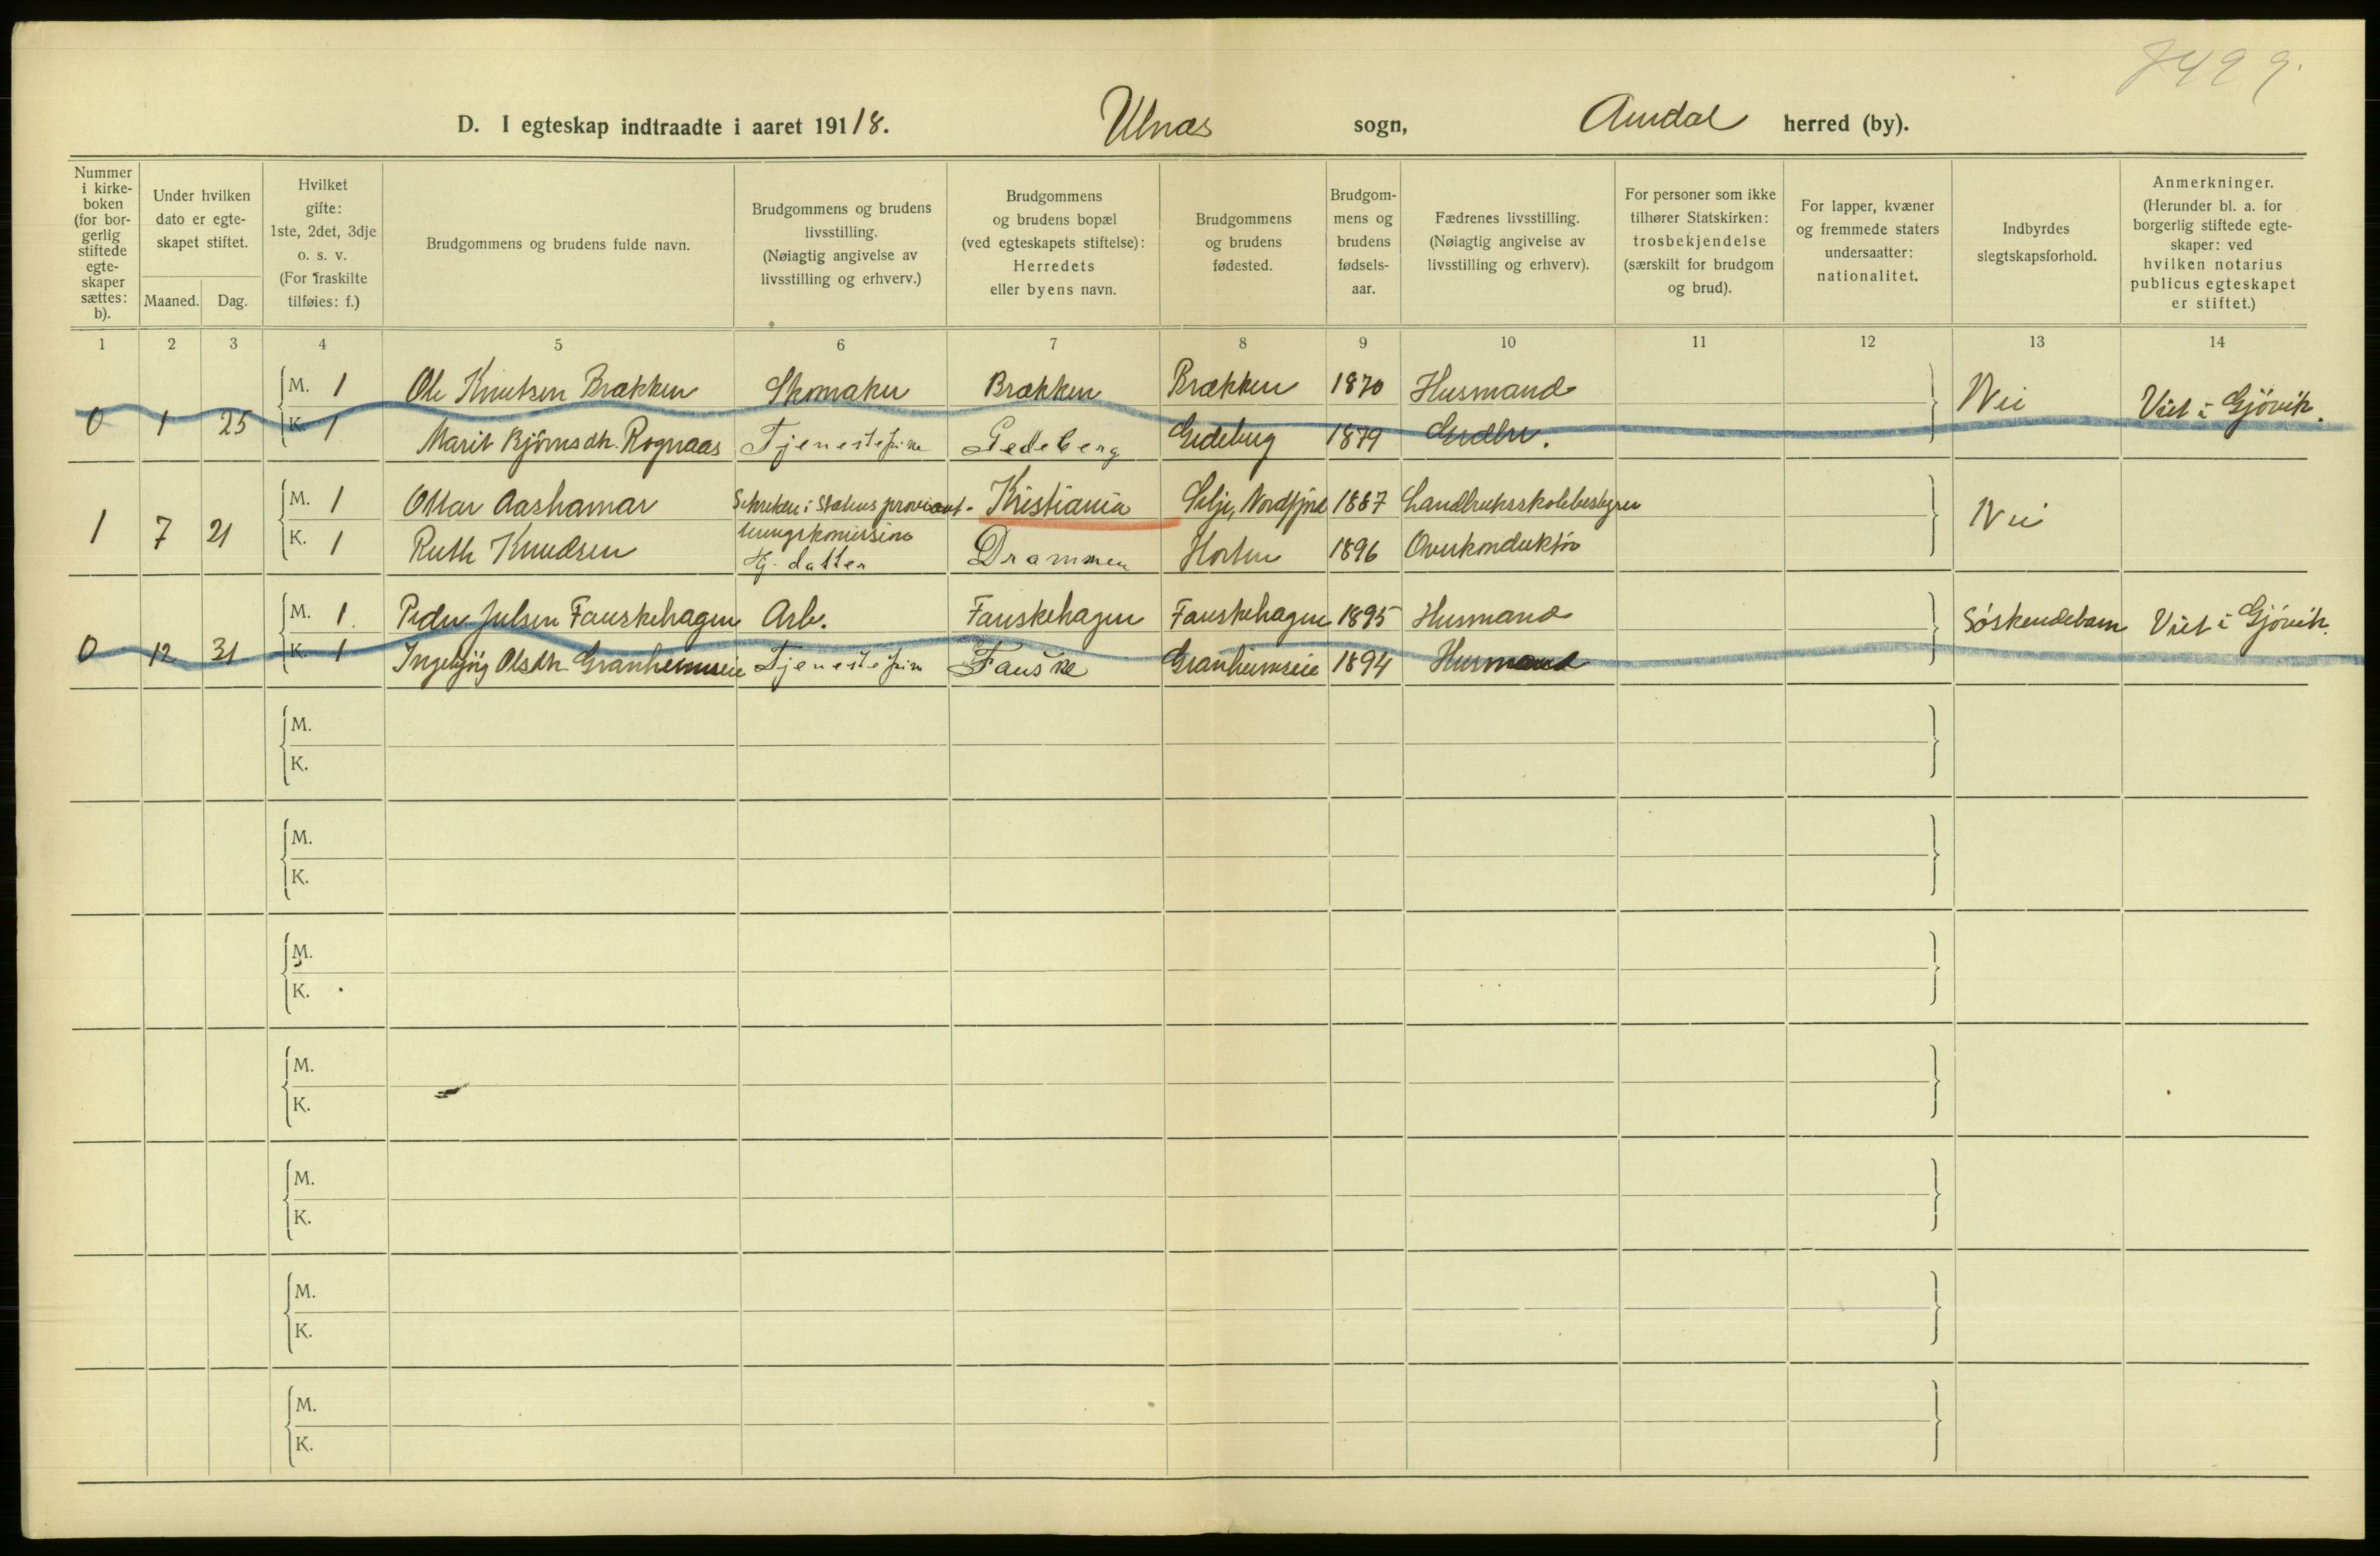 7499.
D. I egteskap indtraadte i aaret 19118. Ulnæs sogn, Aurdal herred (by).
Nummer i kirke-boken (for bor-gerlig stiftede egte-skaper sættes: b).
Under hvilken dato er egte-skapet stiftet.
Maaned. Dag.
Hvilket gifte: 1ste, 2det, 3dje o. s. v. (For fraskilte tilføies: f.)
Brudgommens og brudens fulde navn.
Brudgommens og brudens livsstilling. (Nøiagtig angivelse av livsstilling og erhverv.)
Brudgommens og brudens bopæl (ved egteskapets stiftelse): Herredets eller byens navn.
Brudgommens og brudens fødested.
Brudgom-mens og brudens fødsels-aar.
Fædrenes livsstilling. (Nøiagtig angivelse av livsstilling og erhverv).
For personer som ikke tilhører Statskirken: trosbekjendelse (særskilt for brudgom og brud).
For lapper, kvæner og fremmede staters undersaatter: nationalitet.
Indbyrdes slegtskapsforhold.
Anmerkninger. (Herunder bl. a. for borgerlig stiftede egte-skaper: ved hvilken notarius publicus egteskapet er stiftet.)
1 2 3 4 5 6 7 8 9 10 11 12 13 14
M. 1 Ole Knutsen Brækken Skomaker Brækken Brækken 1870 Husmand
0 1 25 Nei Viet i Gjøvik.
K. 1 Marit Bjørnsdtr. Rognaas Tjenestepike Gedeberg Gedeberg 1879 Grdbr.
M. 1 Ottar Aashamar Sekretær i Statens proviant- Kristiania Selje, Nordfjord 1887 Landbruksskolebestyrer
eringskomission
1 7 21 Nei
K. 1 Ruth Knudsen Hj. datter Drammen Horten 1896 Overkonduktør
M. 1. Peder Julsen Fauskehagen Arb. Fauskehagen Fauskehagen 1895 Husmand
0 12 31 Søskendebarn Viet i Gjøvik.
K. 1 Ingebjørg Olsdtr. Granheimseie Tjenestepike Fauske Granheimseie 1894 Husmand
M.
K.
M.
K.
M.
K.
M.
K.
M.
K.
M.
K.
M.
K.